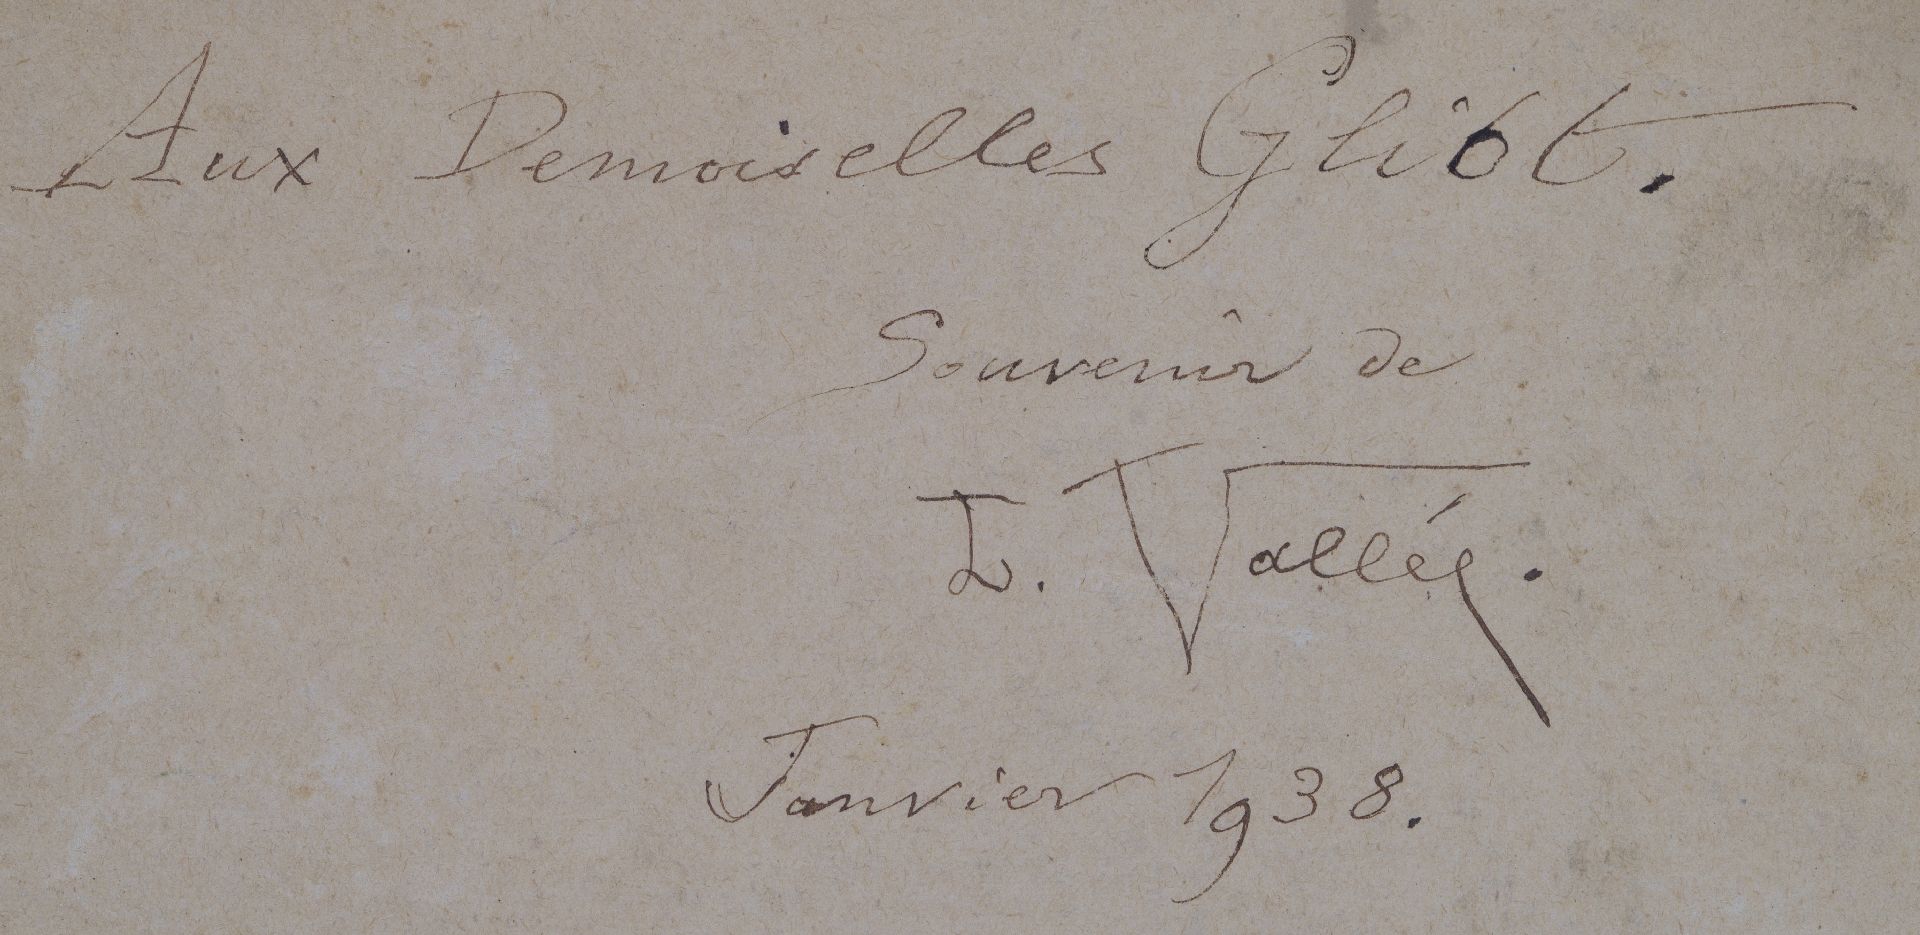 Aux Demoiselles
Souvenir de
L. Vallée.
Janvier 1938.